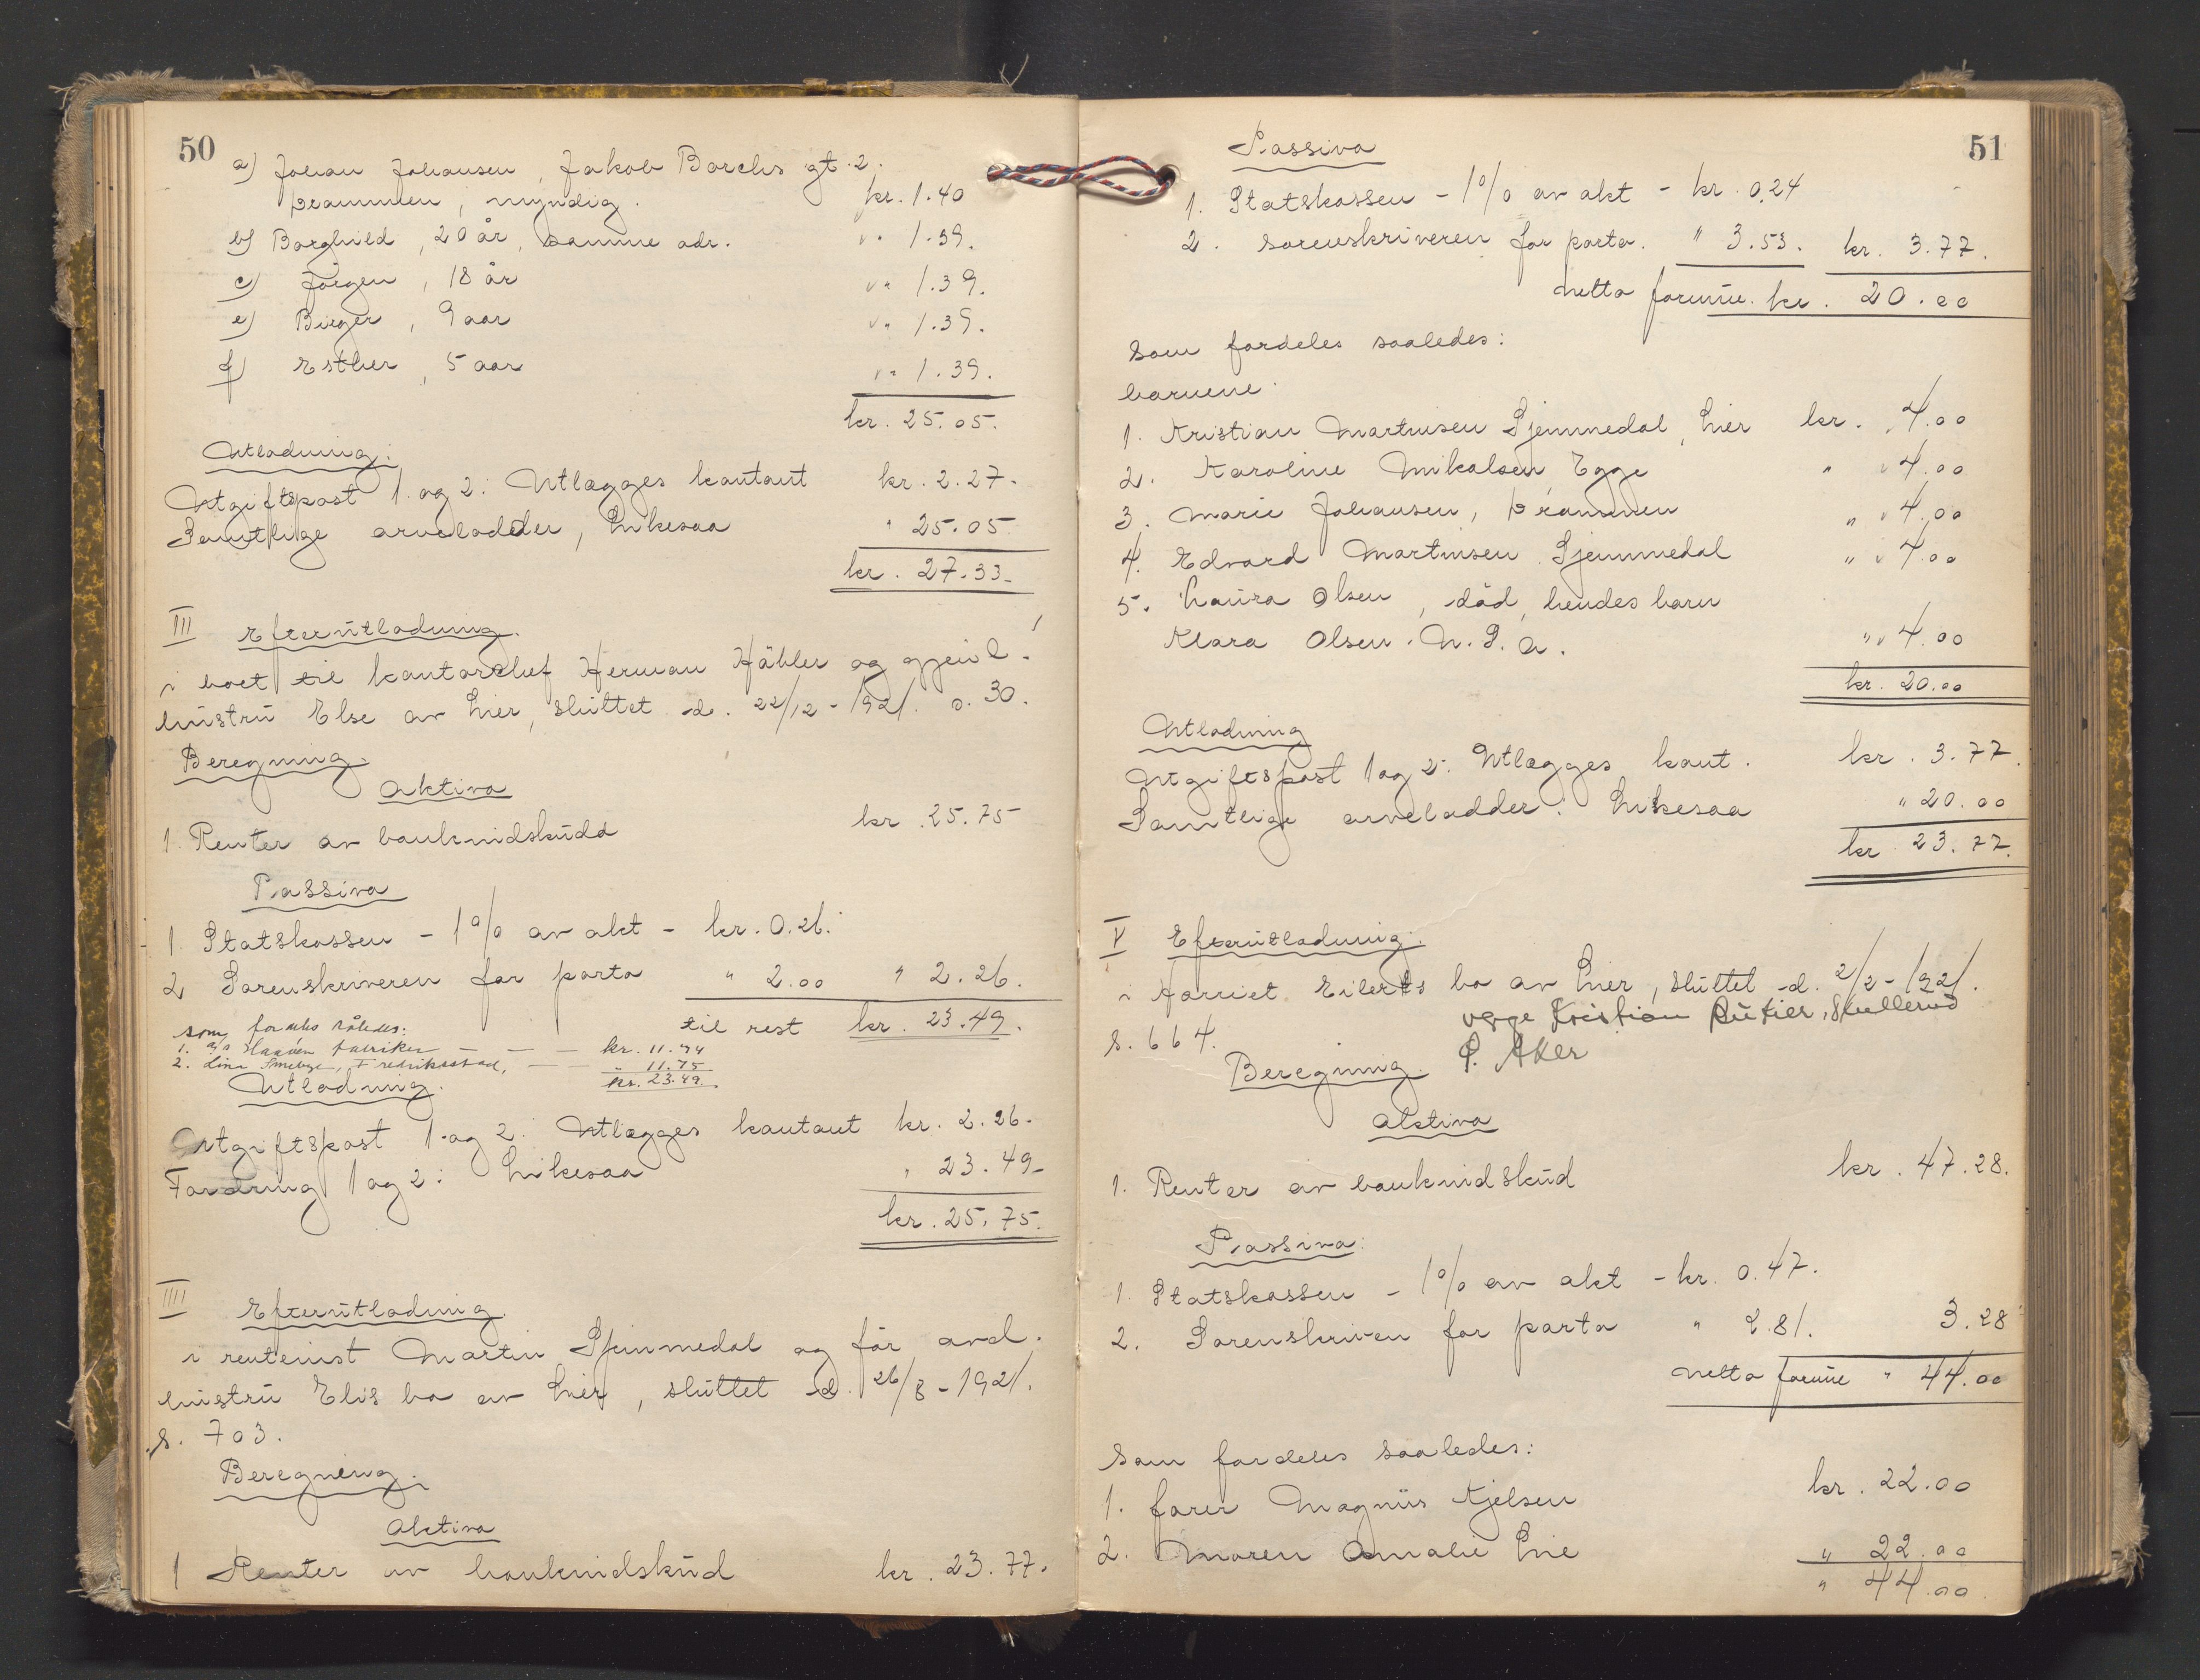 50
a) Johan Johansen, Jakob Borchs gt. 2.
Drammen, myndig. kr. 1.40
b) Borghild, 20 år, samme adr. " 1.39.
c) Jörgen, 18 år " 1.39.
e) Birger, 9 aar " 1.39.
f) Esther, 5 aar " 1.39.
kr. 25.05.
Utlodning.
Utgiftspost 1. og 2: Utlægges kontant kr. 2.27.
Samtlige arvelodder, Likesaa " 25.05
kr. 27.33
III Efterutlodning.
i boet til kontorchef Herman og gjenl.
hustru Else av Lier, sluttet d. 22/12-1921. s. 30.
Beregning.
Aktiva
1. Renter av bankindskudd kr. 25.75
Passiva
1. Statskassen - 1% av akt - kr. 0.26.
2 Sorenskriveren for porto " 2.00 " 2.26.
til rest kr. 23.49.
som fordeles således:
1. A/s fabriker — — — kr. 11.74
2. Lina Fredriksstad, — — " 11.75
kr. 23.49.
Utlodning.
Utgiftspost 1. og 2: Utlægges kontant kr. 2.26.
Fordring 1 og 2: Likesaa " 23.49
kr. 25.75.
IIII Efterutlodning.
i rentenist Martin Gjemmedal og før avd.
hustru Elis bo av Lier, sluttet d. 26/8-1921.
s. 703.
Beregning.
Aktiva
1 Renter av bankindskud kr. 23.77.
51
Passiva
1. Statskassen - 1% av akt - kr. 0.24
2. Sorenskriveren for porto. " 3.53. kr. 3.77.
Netto formue. kr. 20.00
Som fordeles saaledes:
barnene.
1. Kristian Martinsen Gjemmedal, Lier kr. 4.00
2. Karoline Mikalsen Egge " 4.00
3. Marie Johansen, Drammen " 4.00
4. Edvard Martinsen Gjemmedal " 4.00
5. Laura Olsen, död, hendes barn
Klara Olsen. U.S.A. " 4.00
kr. 20.00
Utlodning
Utgiftspost 1 og 2: Utlægges kont. kr. 3.77.
Samtlige arvelodder: Likesaa " 20.00
kr. 23.77.
V Efterutlodning.
i Harriet Eilerts bo av Lier, sluttet d. 2/2-1921.
s. 664. verge Kristian Skullerud
P. Aker
Beregning.
Aktiva
1. Renter av bankindskud kr. 47.28.
Passiva:
1. Statskassen - 1% av akt - kr. 0.47.
2. Sorenskriven for porto " 2.81. 3.28
Netto formue " 44.00
Som fordeles saaledes:
1. farer Magnus Kjelsen kr. 22.00
2. Moren Amalie Lie " 22.00
" 44.00